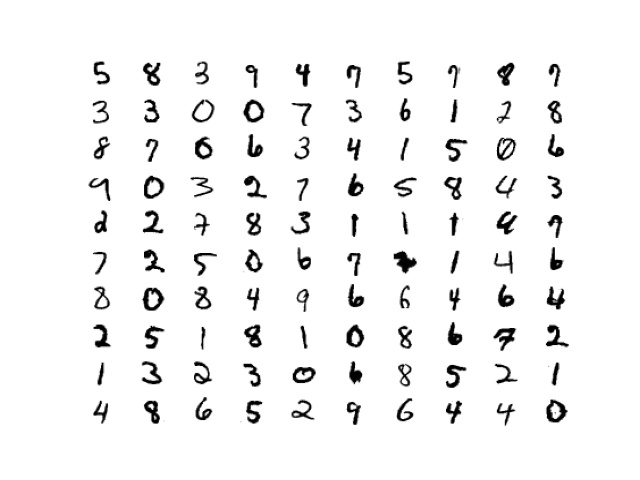 5 8 3 9 4 7 5 7 8 7
3 3 0 0 7 3 6 1 2 8
8 7 0 6 3 4 1 5 0 6
9 0 3 2 7 6 5 8 4 3
2 2 7 8 3 1 1 1 9 7
7 2 5 0 6 7 1 4 6
8 0 8 4 9 6 6 4 6 4
2 5 1 8 1 0 8 6 7 2
1 3 2 3 0 6 8 5 2 1
4 8 6 5 2 9 6 4 4 0